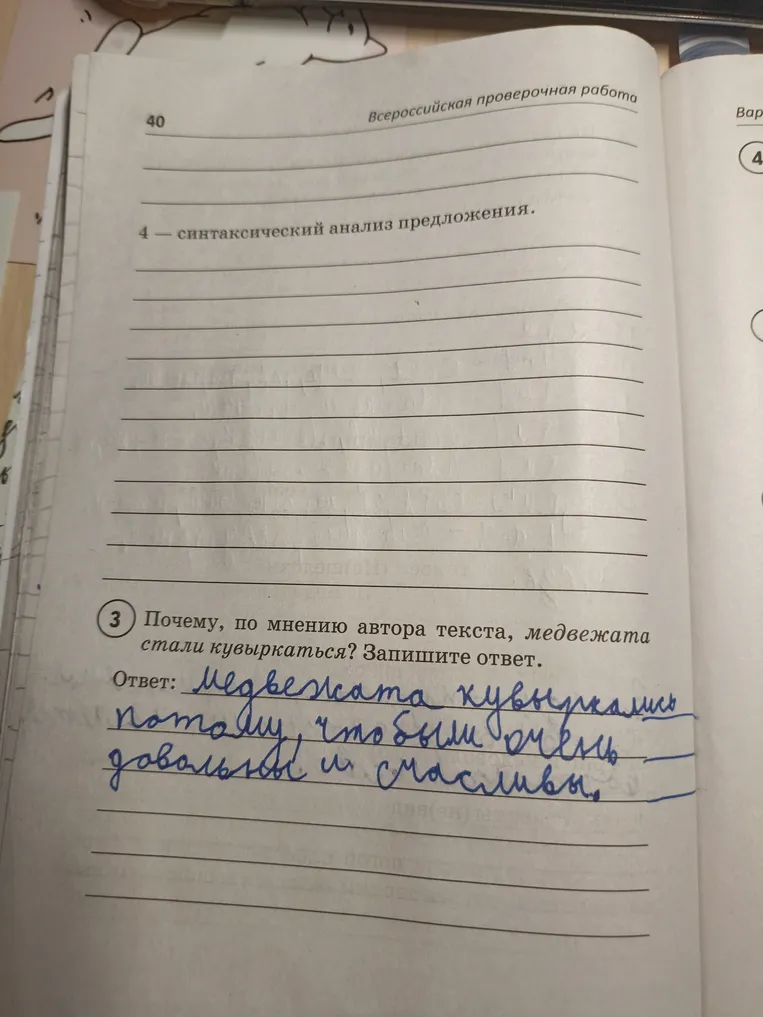 40
Всероссийская проверочная работа
4 — синтаксический анализ предложения.
3 Почему, по мнению автора текста, медвежата
стали кувыркаться? Запишите ответ.
Ответ: Медвежата кувыркались
потому, что были очень
довольны и счасливы.
Вар
4